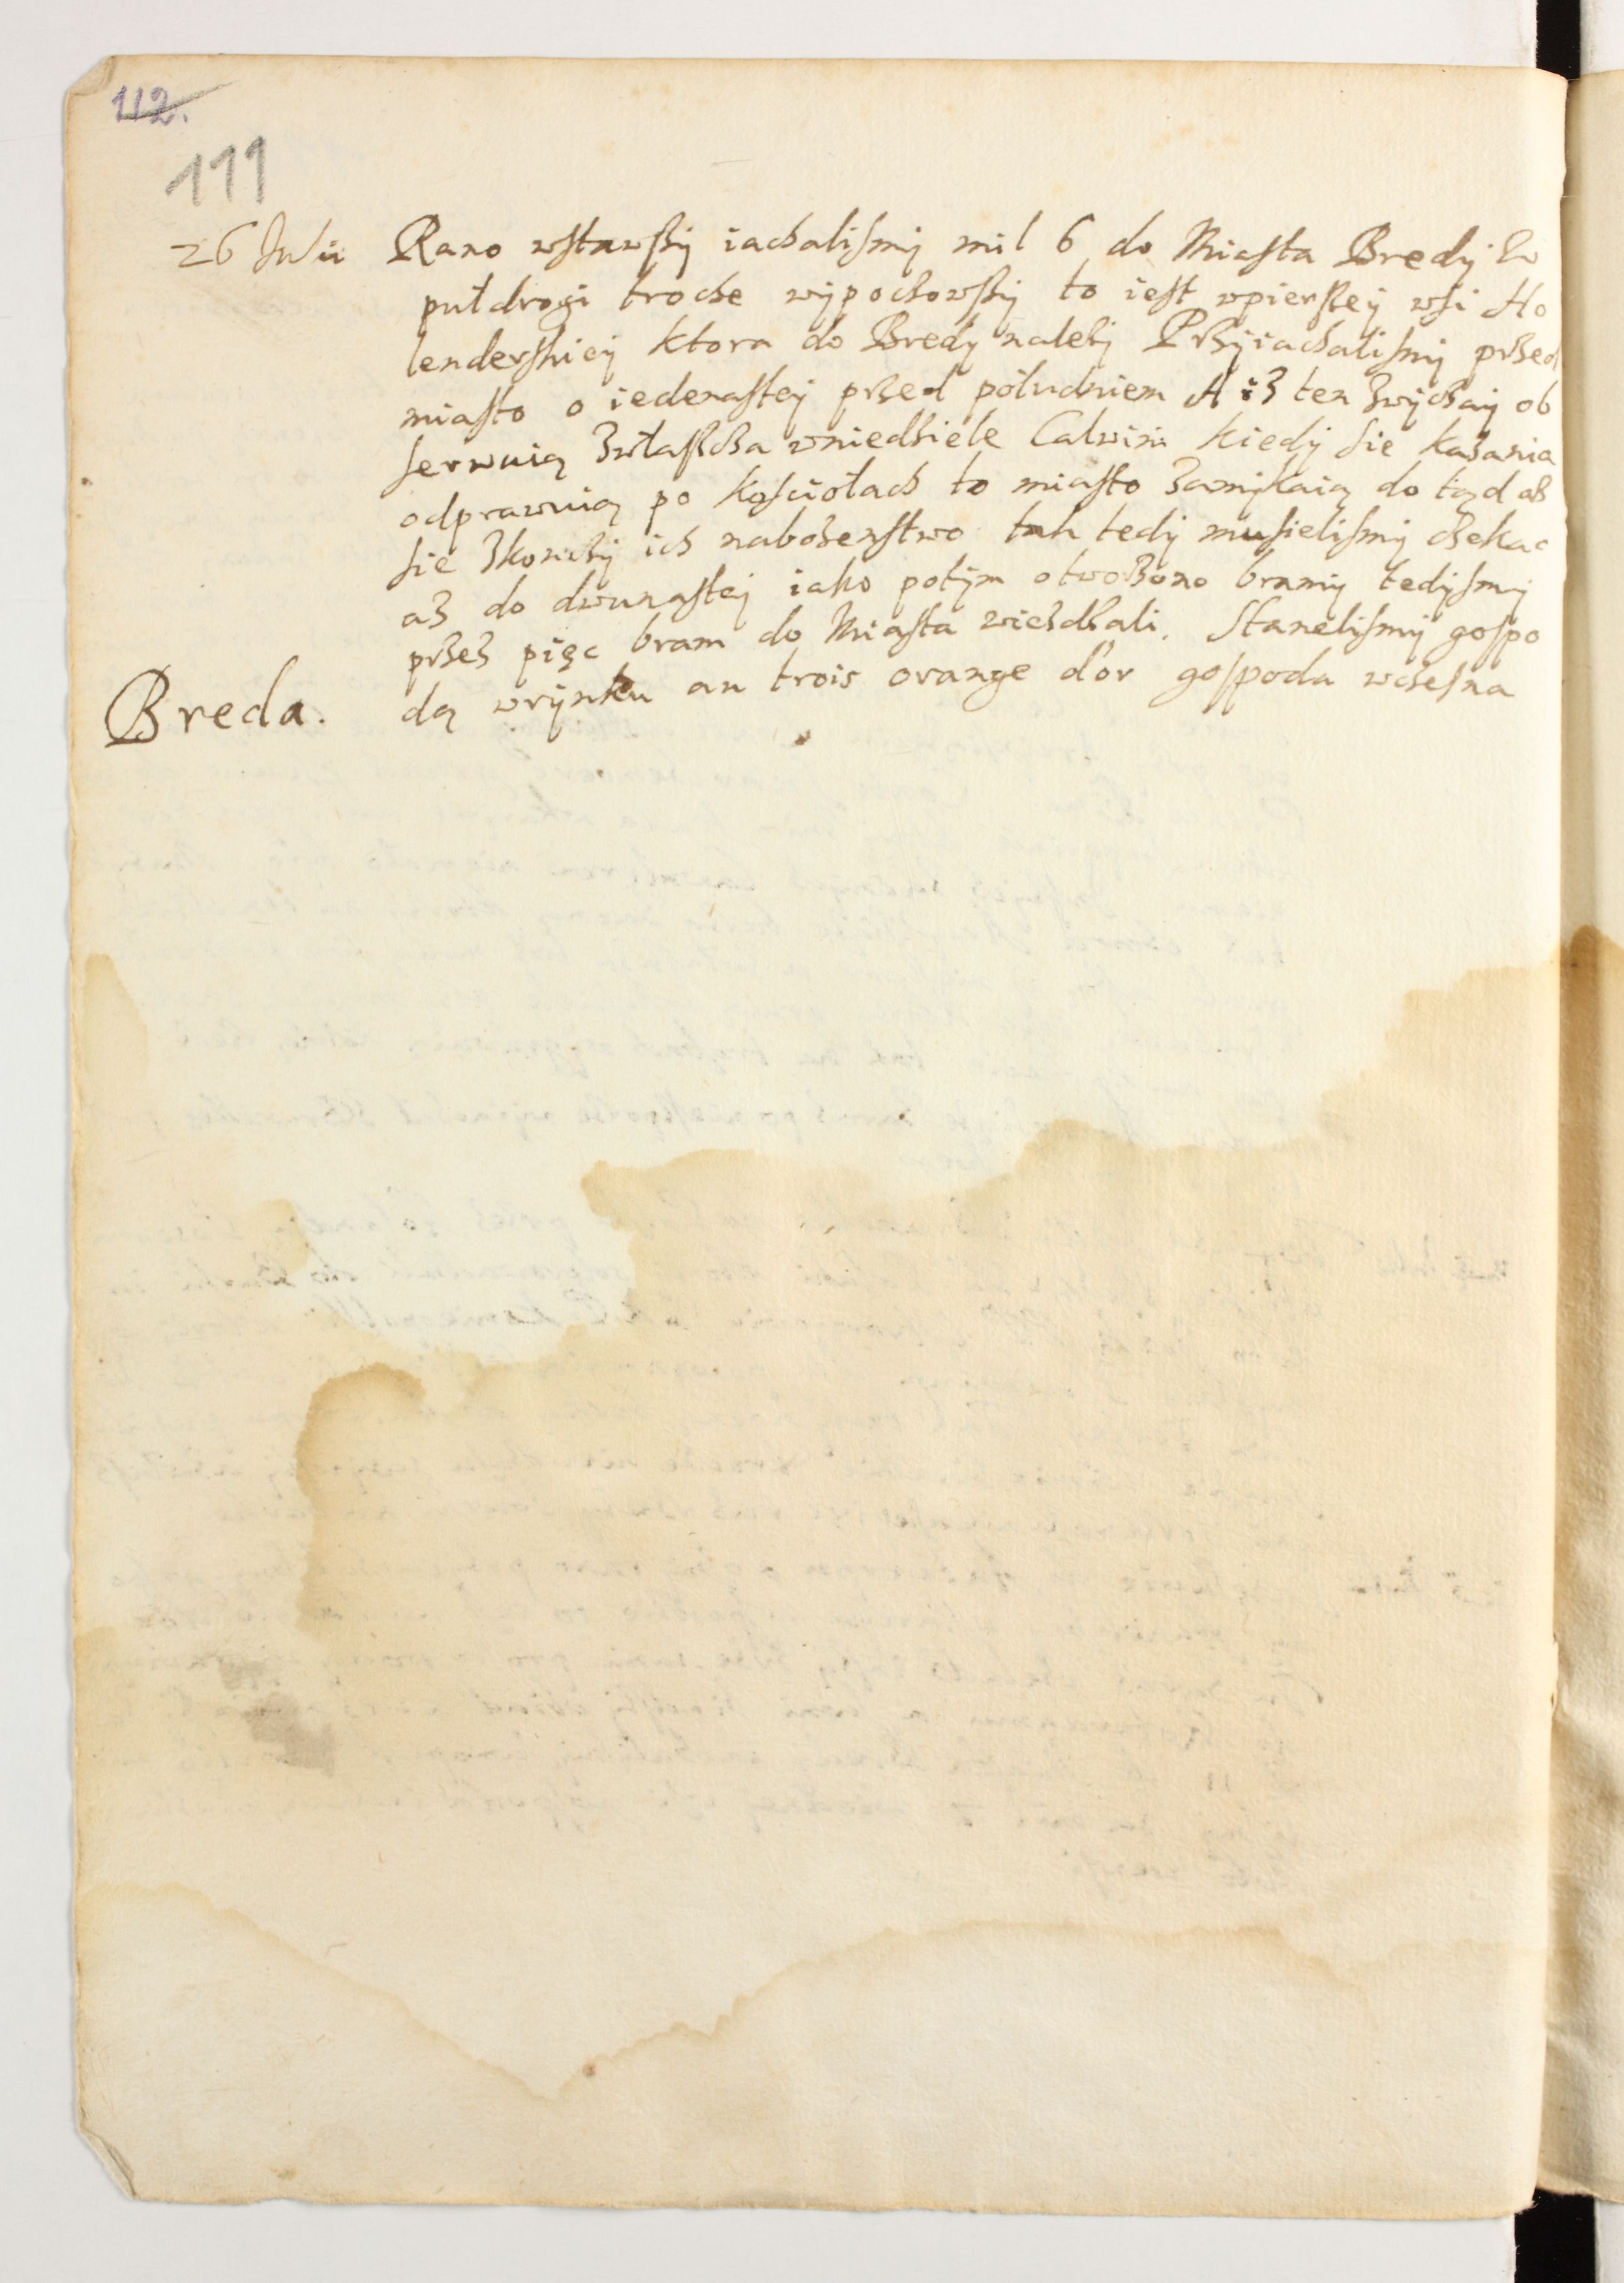 112.
111
26 Julii Rano wstawszy iachalismÿ mil 6 do Miasta Bredÿ
puł drogi troche wÿpochowszÿ to iest wpierszeÿ wsi Ho
lenderskieÿ ktora do Bredÿ należÿ Przÿiachalismÿ przed
miasto o iedenasteÿ przed południem A iż ten zwÿczaÿ ob
serwuią zwłaszcza wniedziele Calwini kiedÿ sie kazania
odprawuią po kosciołach to miasto zamÿkaią do tąd aż
sie skonczÿ ich nabożenstwo tak tedÿ musielismÿ czekac
aż do dwunasteÿ iako potÿm otworzono bramÿ tedÿsmÿ
przez pięc bram do Miasta wieżdżali. Stanelismÿ gospo
Breda. dą wrÿnku au trois orange d'or gospoda wczesna